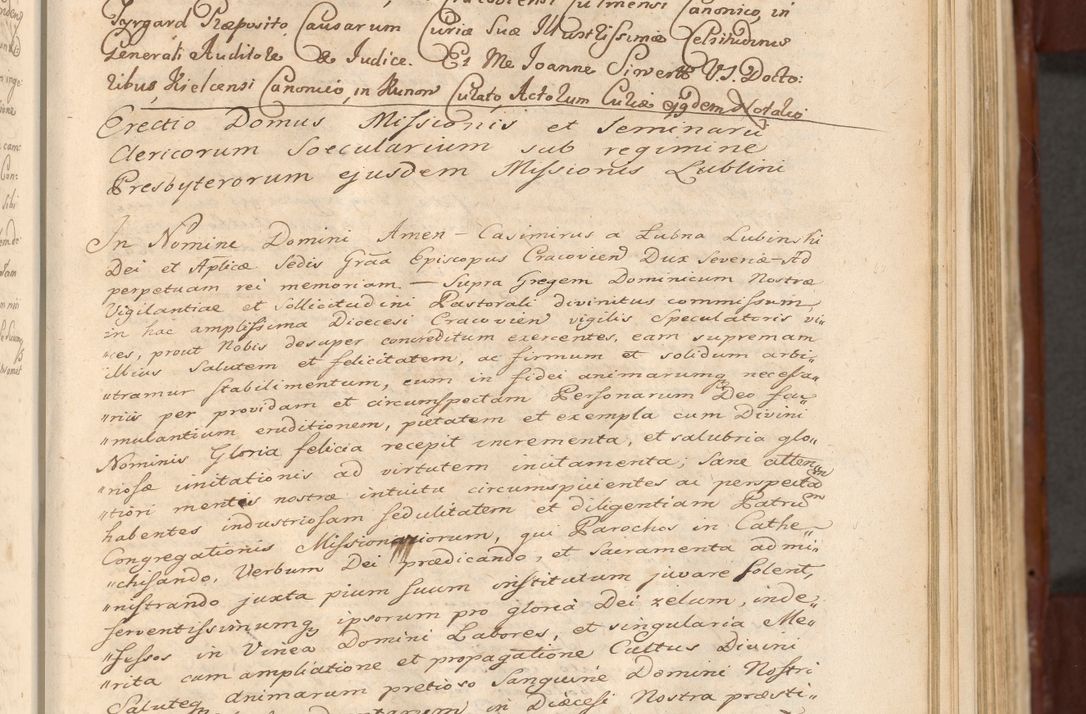 Cracoviensi Culmensi Canonico, in
Pyrgard Præposito, Causarum Curiæ Suæ Illustrissimæ Celsitudinis
Generali Auditore & Judice. Et Me Joanne Siwerth V. S. Docto:
Kielcensi Canonico, in Runow Curato, Actorum Curiæ ejqdem Notario
Erectio Domus Missionis et Seminarii
Clericorum Soecularium sub regimine
Presbyterorum ejusdem Missionis Lublini
In Nomine Domini Amen – Casimirus a Lubna Lubinski
Dei et Aplicæ Sedis Graa Episcopus Cracovien Dux Severiæ – Ad
perpetuam rei memoriam. – Supra Gregem Dominicum Nostræ
Vigilantiae et Sollicitudini Pastorali divinitus commissum,
in hac amplissima Dioecesi Cracovien vigilis Speculatoris vi„
„ces, prout Nobis desuper concreditum exercentes, eam supremam
illius Salutem et felicitatem, ac firmum et solidum arbi„
„tramur stabilimentum, cum in fidei animarumq necessa„
„riis per providam et circumspectam Personarum Deo fa„
„mulantium eruditionem, pietatem et exempla cum Divini
Nominis Gloria felicia recepit incrementa, et salubria glo„
„riosæ imitationis ad virtutem incitamenta; Sane atten„
„tiori mentis nostræ intuitu circumspicientes ac perspecta
habentes industriosam sedulitatem et diligentiam Patrum
Congregationis Missionariorum, qui Parochos in Cathe„
„chisando, Verbum Dei prædicando, et Sacramenta admi„
„nistrando juxta pium suum institutum juvare solent,
ferventissimumq ipsorum pro gloria Dei zelum, inde„
„fessos in Vinea Domini Labores, et singularia Me„
„rita cum ampliatione et propagatione Cultus Divini
Saluteq Animarum pretioso Sanguine Domini Nostri
in Diæcesi Nostra præsti„